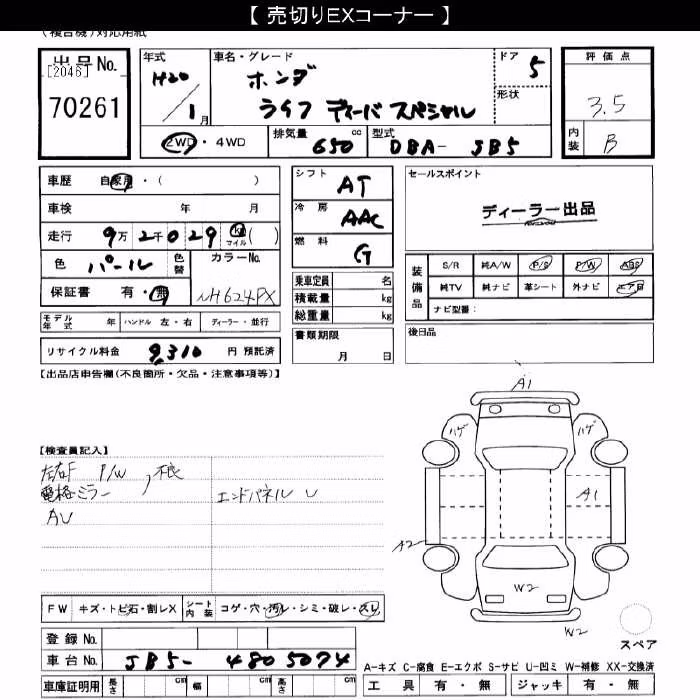 【 売切りEXコーナー 】
(複合機)対応用紙
出品No.
[2046]
70261
年式
H20
1月
車名・グレード
ホンダ
ライフ ディーバ スペシャル
ドア 5
形状
評価点
3.5
内装 B
2WD・4WD
排気量 650 cc
型式 DBA- JB5
車歴 自家用・( )
車検 年 月
走行 9万 2千029 km マイル ( )
色 パール 色替
カラーNo. NH624PX
保証書 有・無
モデル年式 年 ハンドル 左・右 ディーラー・並行
リサイクル料金 9,310 円 預託済
シフト AT
冷房 AAC
燃料 G
乗車定員 名
積載量 kg
総重量 kg
書類期限
月 日
セールスポイント
ディーラー出品
装備品
S/R 純A/W P/S P/W ABS
純TV 純ナビ 革シート 外ナビ エアB
ナビ型番:
後日品
【出品店申告欄(不良箇所・欠品・注意事項等)】
【検査員記入】
左右F P/W
電格ミラー , 不良
AU
エンドパネル U
A1
ハゲ
ハゲ
A1
A2
W2
W2
スペア
FW キズ・トビ石・割レX
シート内装 コゲ・穴・汚レ・シミ・破レ・スレ
登録 No.
車台 No. JB5- 4805074
車庫証明用 長さ cm 幅 cm 高さ cm
A-キズ C-腐食 E-エクボ S-サビ U-凹ミ W-補修 XX-交換済
工具 有・無 ジャッキ 有・無